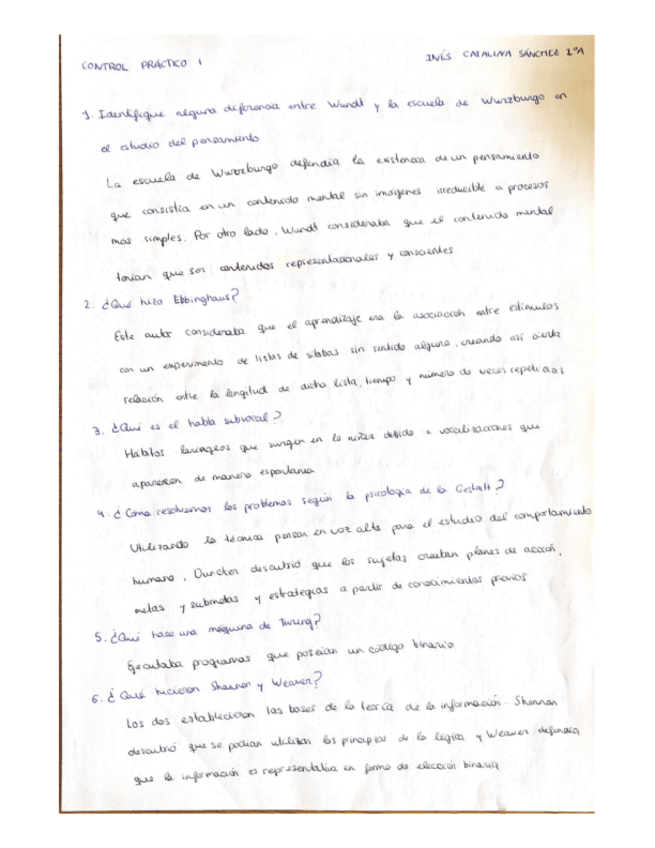 CONTROL PRÁCTICO 1
INÉS CATALINA SÁNCHEZ 1ºA
1. Identifique alguna diferencia entre Wundt y la escuela de Wurzburgo en
el estudio del pensamiento
La escuela de Wurzburgo defendía la existencia de un pensamiento
que consistía en un contenido mental sin imágenes irreducible a procesos
más simples. Por otro lado, Wundt consideraba que el contenido mental
tenían que ser contenidos representacionales y conscientes
2. ¿Qué hizo Ebbinghaus?
Este autor consideraba que el aprendizaje era la asociación entre estímulos
con un experimento de listas de sílabas sin sentido alguno, creando así cierta
relación entre la longitud de dicha lista, tiempo y número de veces repetidas
3. ¿Qué es el habla subvocal?
Hábitos laríngeos que surgen en la niñez debido a vocalizaciones que
aparecen de manera espontánea
4. ¿Cómo resolvemos los problemas según la psicología de la Gestalt?
Utilizando la técnica pensar en voz alta para el estudio del comportamiento
humano, Duncker descubrió que los sujetos creaban planes de acción,
metas y submetas y estrategias a partir de conocimientos previos
5. ¿Qué hace una máquina de Turing?
Ejecutaba programas que poseían un código binario
6. ¿Qué hicieron Shannon y Weaver?
Los dos establecieron las bases de la teoría de la información. Shannon
descubrió que se podían utilizar los principios de la lógica y Weaver defendía
que la información es representativa en forma de elección binaria